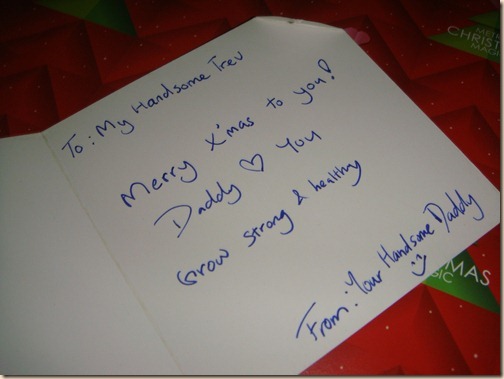 To: My Handsome Trev
Merry X'mas to you!
Daddy ♡ You
Grow strong & healthy
From: Your Handsome Daddy
CHRIST
MAGIC
MAS